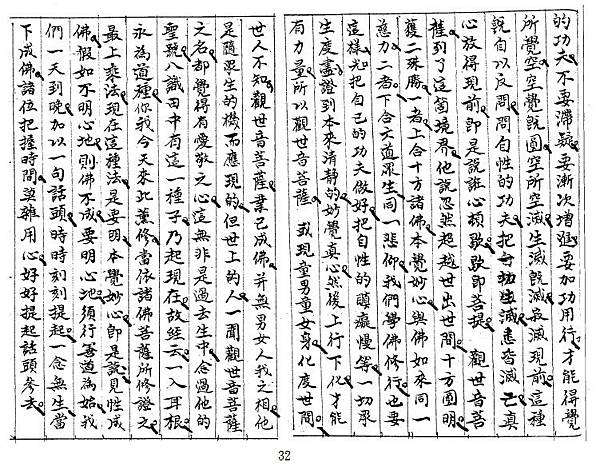 的功夫不要滯疑要漸次增進要加功用行才能得覺
所覺空空覺既圓空所空滅生滅既滅寂滅現前這種
說自以反問問自性的功夫把生滅悉皆滅亡真
心放得現前即是說誰心頓歇歇即菩提 觀世音菩
薩到了這個境界他說忽然超越世出世間十方圓明
獲二殊勝一者上合十方諸佛本覺妙心與佛如來同一
慈力二者下合六道眾生同一悲仰我們學佛修行也要
這樣先把自己的功夫做好把自性的瞋癡慢等一切眾
生度盡證到本來清靜的妙覺真心然後上行下化才能
有力量所以觀世音菩薩 或現童男童女身化度世間
世人不知觀世音菩薩業已成佛并無男女人我之相他
是隨眾生的機而應現的但世上的人一聞觀世音菩薩
之名都覺得有愛敬之心這無非是過去生中念過他的
聖號八識田中有這一種子乃起現在故經云一入耳根
永為道種你我今天來此薰修當依諸佛菩薩所修證之
最上乘法現在這種法是要明本覺妙心即是說見性成
佛假如不明心地則佛不成要明心地須行善道為始我
們一天到晚加以一句話頭時時刻刻提起一念無生當
下成佛諸位把握時間莫雜用心好好提起話頭參去
32